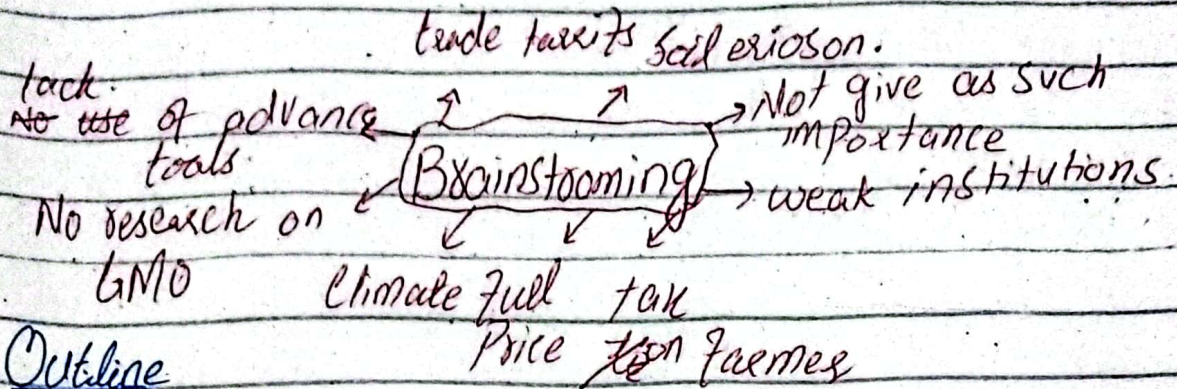 trade tarrits Soil erioson.
lack.
No use of advance
tools.
Not give as such
importance
Brainstroming
weak institutions.
No research on
GMO
Climate
Fuel
Price
tax
on Farmer
Outline